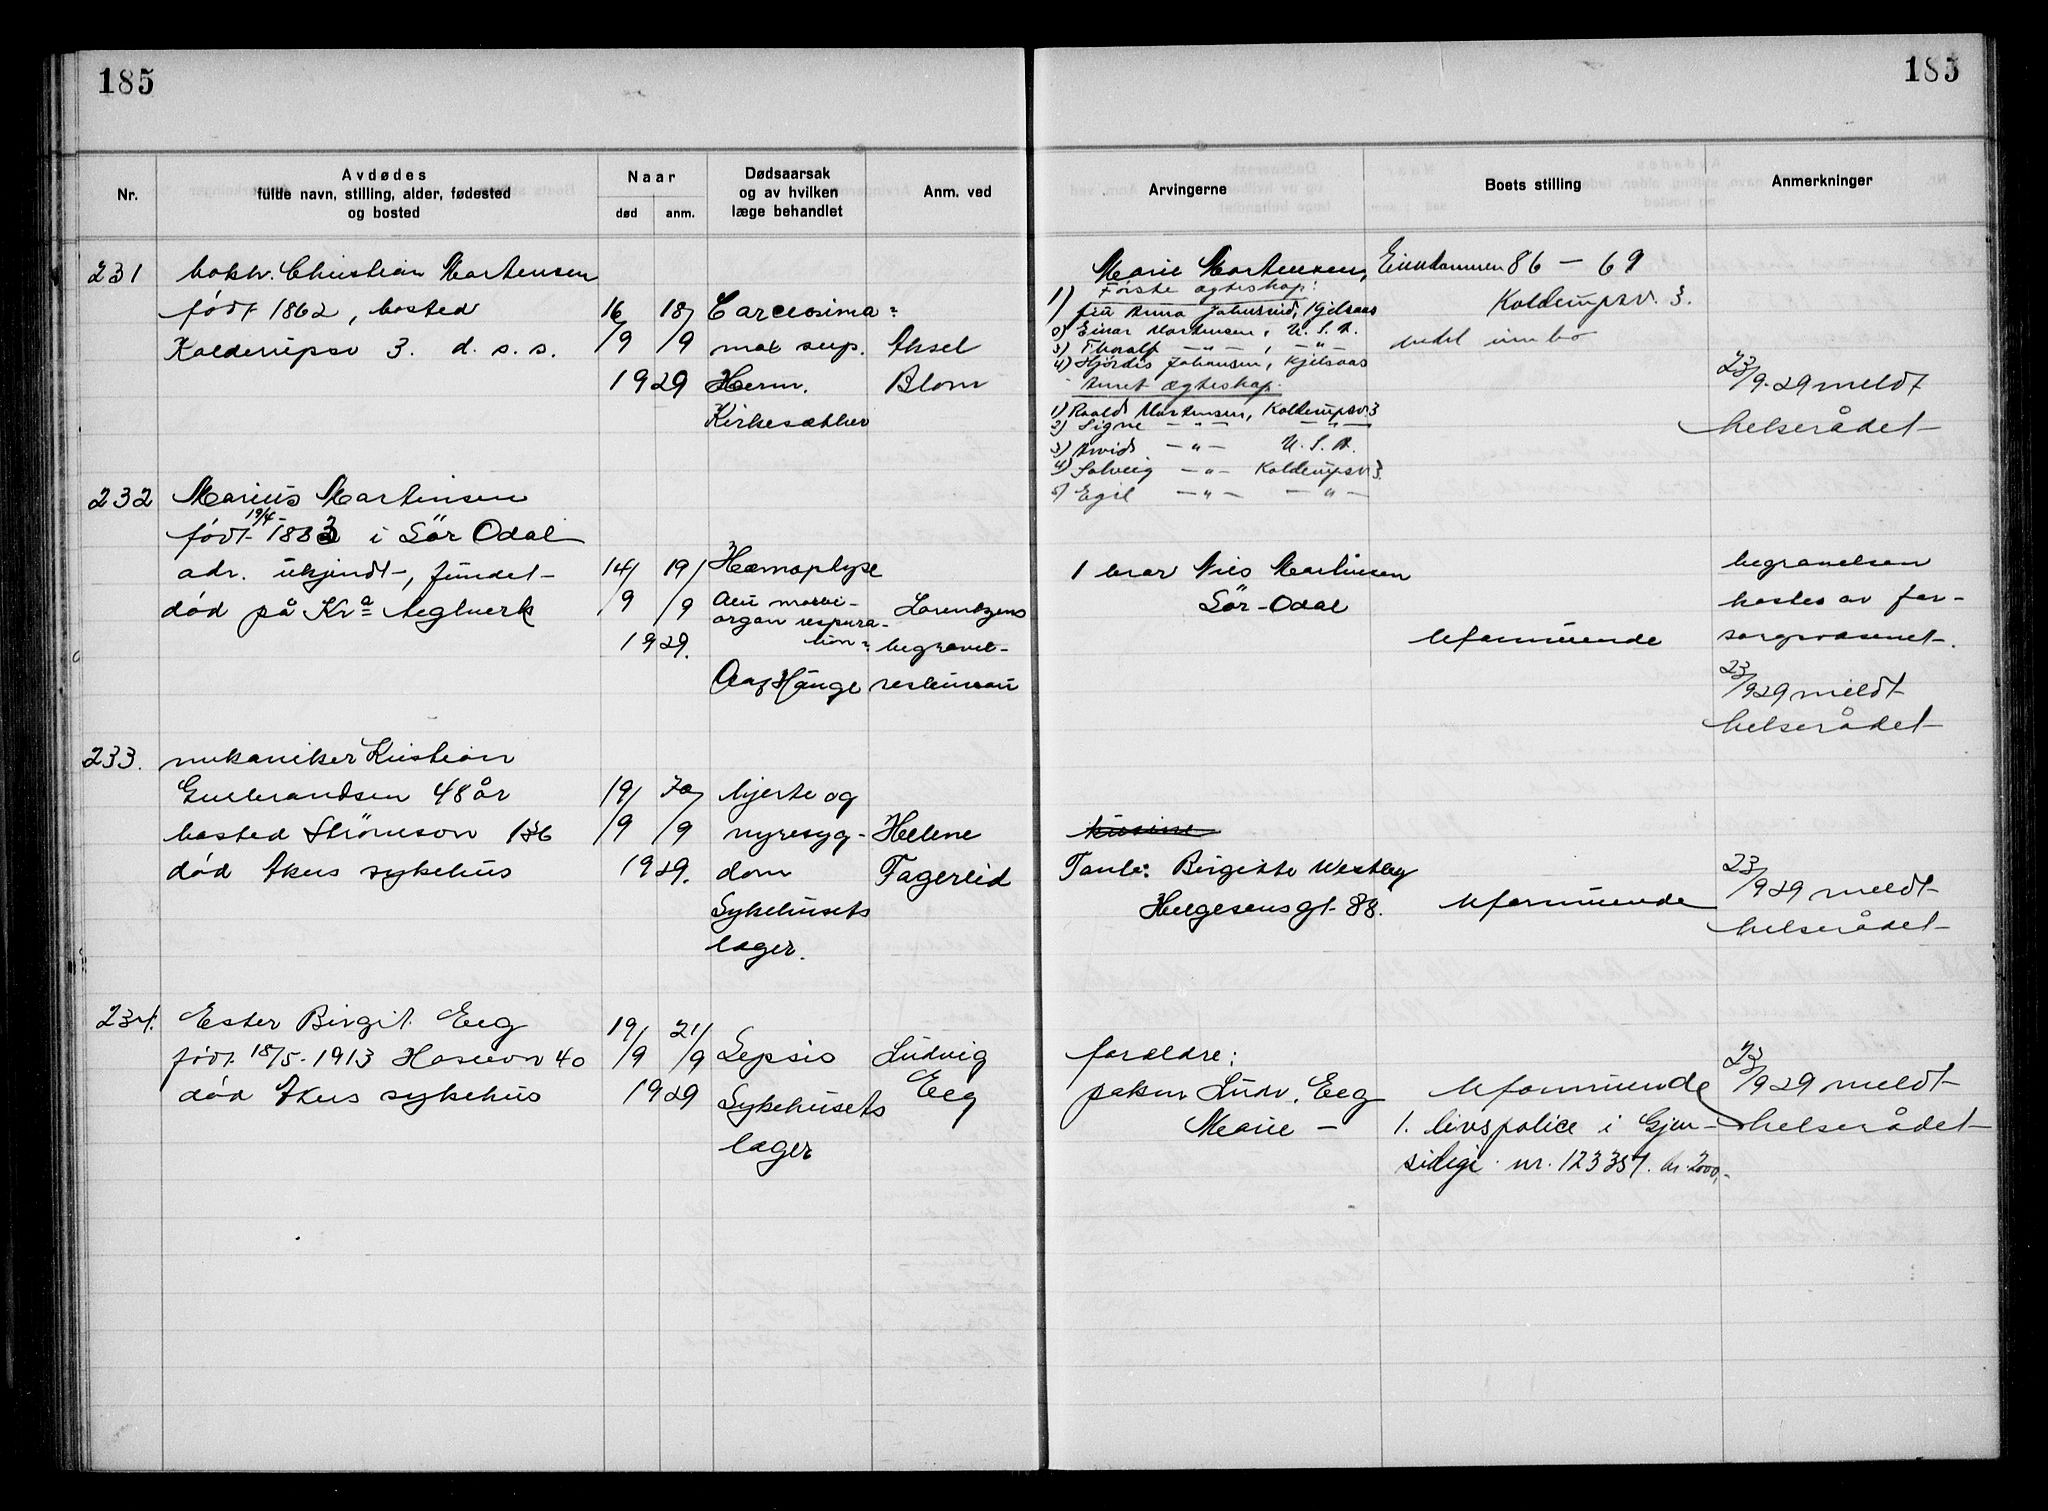 185
185
Nr.
Avdødes
fulde navn, stilling, alder, fødested
og bosted
Naar
død
anm.
Dødsaarsak
og av hvilken
læge behandlet
Anm. ved
Arvingerne
Boets stilling
Anmerkninger
231
Christian Martensen
født 1862, bosted
Kolderupsv 3. d. s. s.
16/9 18/9
1929
Carcinoma
max sup.
Herm.
Kirkesæther
Aksel
Blom
Marie Martensen,
Første egteskap:
1) fru Anna Johnsrud, Kjelsaas
2) Einar Martensen, U.S.A.
3) Thoralf —"— , —"—
4) Hjørdis Johansen, Kjelsaas
Annet ægteskap.
1) Roald Martensen, Kolderupsv. 3
2) Signe —"— —"—
3) Arvid —"— U.S.A.
4) Solveig —"— Kolderupsv 3.
5) Egil —"— —"—
Eiendommen 86 — 69
Kolderupsv. 3.
23/9-29 meldt
helserådet
232
Marius Martinsen
19/4-
født 1883 i Sör Odal
adr. ukjendt, fundet
død på Kra Teglverk
14/9 19/9
1929.
Hæmoptyse
organ respira-
tion-
Hauge
Lorentzens
begravel-
resbureau
1 bror Nils Martinsen
Sör-Odal
Uformuende
begravelsen
kostes av for-
sorgsvæsenet.
23/9 29 meldt
helserådet
233.
mekaniker Kristian
Gulbrandsen 48 år
bosted Strömsvn 136
død Akers sykehus
19/9 20/9
1929.
hjerte og
nyresyg-
dom
Sykehusets
læger.
Helene
Fagerlid
kusine
Tante: Birgitte Westby
Helgesensgt. 88.
Uformuende
23/9 29 meldt
helserådet
234.
Ester Birgit Eeg
født 18/5-1913 Haslevn 40
død Akers sykehus
19/9 21/9
1929
Sepsis
Sykehusets
læger
Ludvig
Eeg
foreldre:
pakm Ludv. Eeg
Marie —
Uformuende
1. livspolice i Gjen-
sidige nr. 123357. kr. 2000,-
23/9 29 meldt
helserådet